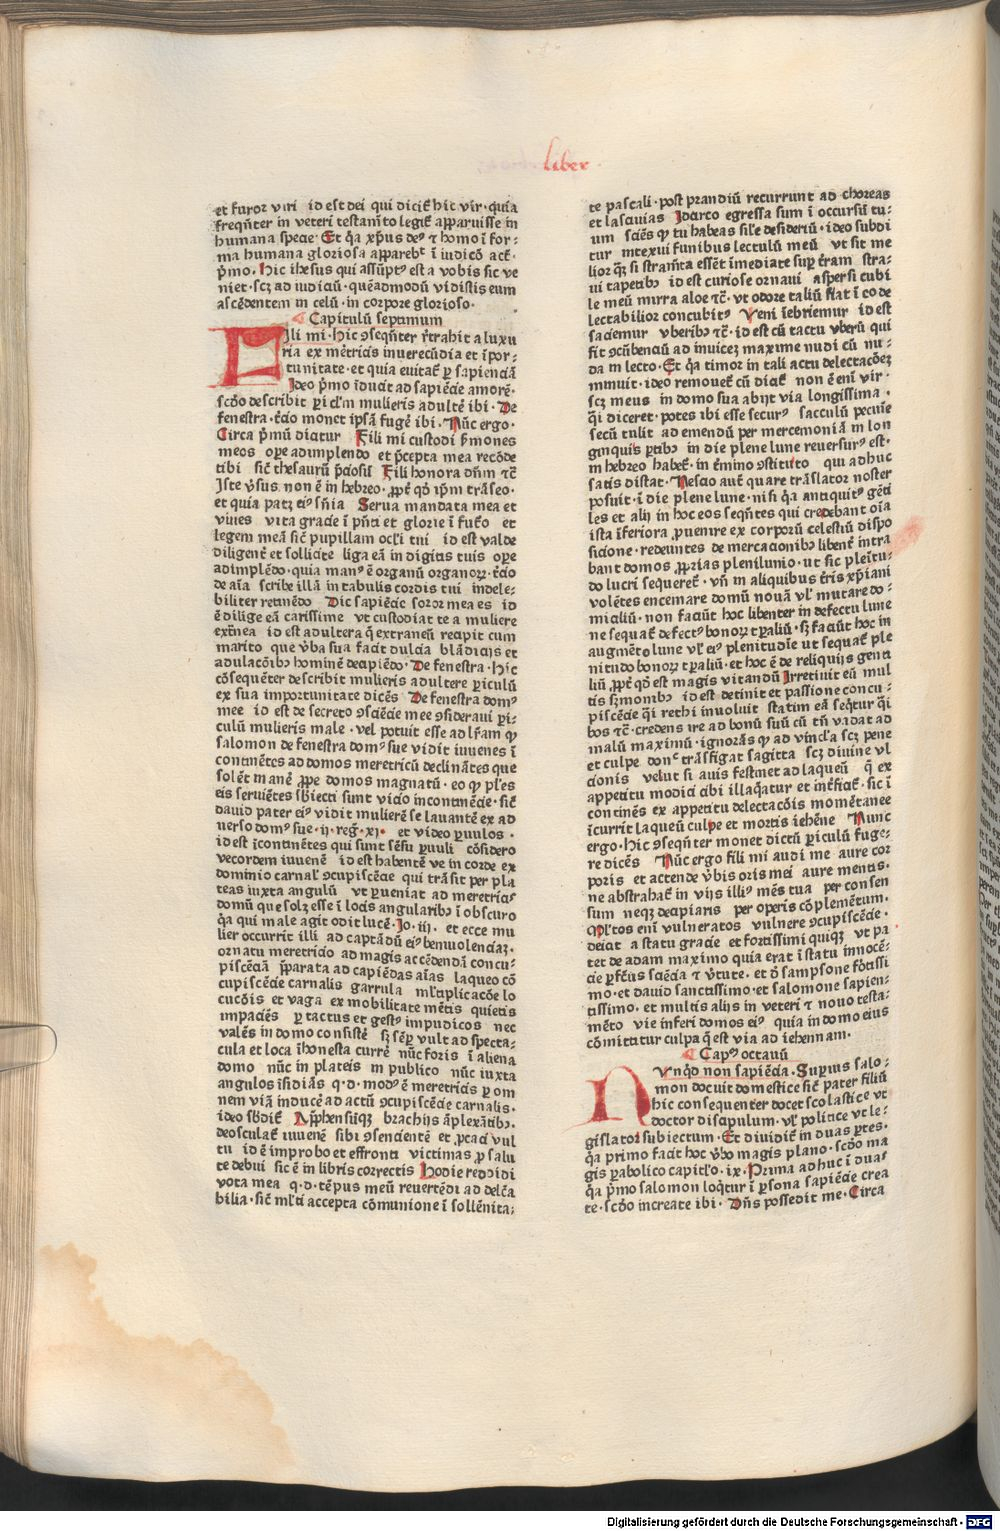 liber
et furor viri id est dei qui dicit̃ hic vir · quia
freqũter in veteri testam̃to legit̃ apparuisse in
humana specie · Et q̃a xp̃us de⁹ ⁊ homo ĩ for⸗
ma humana gloriosa apparebt̃ ĩ iudicõ act̃ ·
p̃mo · Hic ihesus qui assũpt⁹ est a vobis sic ve
niet · scꝫ ad iudiciũ · quẽadmodũ vidistis eum
ascẽdentem in celũ · in corpore glorioso ·
Capitulũ septimum
Fili mi · hic ↄseqñter r̃trahit a luxu
ria ex mẽtricis inuerecũdia et ĩpor⸗
tunitate · et quia euitat̃ ꝑ sapienciã
Ideo p̃mo ĩducit ad sapiẽcie amorẽ ·
scd̃o describit ꝑicl̃m mulieris adultẽ ibi · De
fenestra · t̃cio monet ipsã fugẽ ibi · Nũc ergo ·
Circa p̃mũ dicitur Fili mi custodi ẜmones
meos oꝑe adimplendo et p̃cepta mea recõde
tibi sic̃ thesaurũ p̃ciosũ Fili honora dñm ⁊c̃
Iste ṽsus non ẽ in hebreo · ꝓpt̃ qd̃ ip̃m trãseo ·
et quia patꝫ ei⁹ sñia Serua mandata mea et
viues vita gracie ĩ p̃nti et glorie ĩ fut̃o et
legem meã sic̃ pupillam ocl̃i tui id est valde
diligent̃ et sollicite liga eã in digitis tuis oꝑe
adimplẽdo · quia man⁹ ẽ organũ organoꝝ · t̃cio
de aĩa scribe illã in tabulis cordis tui indele⸗
biliter retinẽdo Dic sapiẽcie soror mea es id
ẽ dilige eã carissime vt custodiat te a muliere
ext̃nea id est adultera q̃ extraneũ recipit cum
marito que ṽba sua facit dulcia blãdicijs et
adulacõibꝯ hominẽ decipiẽdo · De fenestra · Hic
cõsequẽter describit mulieris adultere ꝑiculũ
ex sua importunitate dicẽs De fenestra dom⁹
mee id est de secreto ↄsciẽcie mee ↄsideraui ꝑi⸗
culũ mulieris male · vel potuit esse ad lr̃am ꝙ
salomon de fenestra dom⁹ sue vidit iuuenes ĩ
continẽtes ad domos meretricũ declinãtes que
solẽt manẽ ꝓpe domos magnatũ · eo ꝙ pl̃es
eis seruiẽtes sb̃iecti sunt vicio incontinẽcie · sic̃
dauid pater ei⁹ vidit mulierẽ se lauantẽ ex ad
uerso dom⁹ sue · ij · reg̃ · xj · et video ꝑuulos ·
id est ĩcontinẽtes qui sunt sẽsu ꝑuuli cõsidero
vecordem iuuenẽ id est habentẽ ve in corde ex
dominio carnal̃ ↄcupiscẽcie qui trãsit per pla
teas iuxta angulũ vt ꝑueniat ad meretrici⁹
domũ que solꝫ esse ĩ locis angularibꝯ ĩ obscuro
q̃a qui male agit odit lucẽ · Io · iij · et ecce mu
lier occurrit illi ad captãdũ ei⁹ beniuolenciaꝫ ·
ornatu meretricio ad magis accẽdendã concu⸗
piscẽciã p̃parata ad capiẽdas aĩas laqueo cõ
cupiscẽcie carnalis garrula ml̃tiplicacõe lo
cucõis et vaga ex mobilitate mẽtis quietis
impaciẽs ꝑ tactus et gest⁹ impudicos nec
valẽs in domo consistẽ sꝫ sẽꝑ vult ad specta⸗
cula et loca ĩhonesta currẽ nũc foris ĩ aliena
domo nũc in plateis in publico nũc iuxta
angulos ĩsidiãs · q · d · mod⁹ ẽ meretricis ꝑ om
nem viã inducẽ ad actũ ↄcupiscẽcie carnalis ·
ideo sb̃dit̃ Apprẽhensũqꝫ brachijs ãplexãtibꝯ ·
deosculat̃ iuuenẽ sibi ↄsencientẽ et ꝓcaci vul
tu id ẽ improbo et effronti victimas ꝓ salu
te debui sic ẽ in libris correctis Hodie reddidi
vota mea · q · d · tẽpus meũ reuertẽdi ad delc̃a
bilia · sic̃ ml̃ti accepta cõmunione ĩ sollẽnita⸗
te pascali · post prandiũ recurrunt ad choreas
et lasciuias Idcirco egressa sum ĩ occursũ tu⸗
um sciẽs ꝙ tu habeas sil̃e desideriũ · ideo subdi
tur intexui funibus lectulũ meũ vt sit me
lior qꝫ si stram̃ta essẽt ĩmediate suꝑ t̃ram stra⸗
ui tapetibꝯ id est curiose ornaui aspersi cubi
le meũ mirra aloe ⁊c̃ · vt odore taliũ fiat ĩ eo de
lectabilior concubit⁹ Veni ĩebriemur id est
saciemur vberibꝯ ⁊c̃ · id est cũ tactu vberũ qui
fit ↄcũbenciũ ad inuiceꝫ maxime nudi cũ nu⸗
da in lecto · Et q̃a timor in tali actu delectacõeꝫ
minuit · ideo remouet̃ cũ dicit̃ non ẽ enĩ vir ·
scꝫ meus in domo sua abijt via longissima ·
q̃i diceret · potes ibi esse secur⁹ sacculũ pecuĩe
secũ tulit ad emendũ per mercemoniã in lon
ginquis ꝑtibꝯ in die plene lune reuersur⁹ est ·
in hebreo habet̃ · in t̃mino ↄstituto qui adhuc
satis distat · Nescio aut̃ quare trãslator noster
posuit · ĩ die plene lune · nisi q̃a antiquit⁹ gẽti
les et alij in hoc eos seq̃ntes qui credebant oĩa
ista ĩferiora ꝓuenire ex corporũ celestiũ dispo
sicione · redeuntes de mercacionibꝯ libent̃ intra
bant domos ꝓprias plenilunio · ut sic pleĩtu⸗
do lucri sequeret̃ · vñ in aliquibus t̃ris xp̃iani
volẽtes encemare domũ nouã vl̃ mutare do⸗
miciliũ · non faciũt hoc libenter in defectu lune
ne sequat̃ defect⁹ bonoꝝ tꝑaliũ · sꝫ faciũt hoc in
augmẽto lune vl̃ ei⁹ plenitudĩe ut sequat̃ ple
nitudo bonoꝝ tꝑaliũ · et hoc ẽ de reliquijs genti
liũ ꝓpt̃ qd̃ est magis vitandũ Irretiuit eũ mul
tis sꝫmonibꝯ id est detinit et passione concu⸗
piscẽcie q̃i rethi inuoluit statim eã seq̃tur q̃i
bos ⁊c̃ · credens ire ad bonũ suũ cũ tñ vadat ad
malũ maximũ · ignorãs ꝙ ad vincl̃a scꝫ pene
et culpe donꝯ trãsfigat sagitta scꝫ diuine vl
cionis velut si auis festinet ad laqueũ q̃ ex
appetitu modici cibi illaq̃atur et inter̃ficit̃ · sic ĩ
continẽs ex appetitu delectacõis momẽtanee
ĩcurrit laqueũ culpe et mortis iehẽne Nunc
ergo · Hic ↄseq̃nter monet dictũ ꝑiculũ fuge⸗
re dicẽs Nũc ergo fili mi audi me aure cor
poris et actende ṽbis oris mei aure mentis ·
ne abstrahat̃ in vijs illi⁹ mẽs tua per consen
sum neqꝫ decipiaris per operis cõplementum ·
Ml̃tos enĩ vulneratos vulnere ↄcupiscẽcie ·
deiecit a statu gracie et fortissimi quiqꝫ vt pa
tet de adam maximo quia erat ĩ statu innocẽ⸗
cie ꝑfc̃us sciẽcia et ṽtute · et d̃ sampsone fõtissi
mo · et dauid sanctissimo · et salomone sapien⸗
tissimo · et multis alijs in veteri ⁊ nouo testa⸗
mẽto vie inferi domos ei⁹ quia in domo eius
cõmittitur culpa q̃ est via ad iehennam ·
Cap⁹ octauũ
Nunqd̃ non sapiẽcia · Superius salo⸗
mon docuit domestice sic̃ pater filiũ
hic consequenter docet scolastice vt
doctor discipulum · vl̃ politice vt le⸗
gislator subiectum · Et diuidit̃ in duas ꝑtes ·
q̃a primo facit hoc ṽbo magis plano · scd̃o ma
gis ꝑabolico capitl̃o · ix · Prima adhuc ĩ duas
q̃a p̃mo salomon loq̃tur ĩ ꝑsona sapiẽcie crea
te · scd̃o increate ibi · Dñs possedit me · Circa
Digitalisierung gefördert durch die Deutsche Forschungsgemeinschaft - DFG